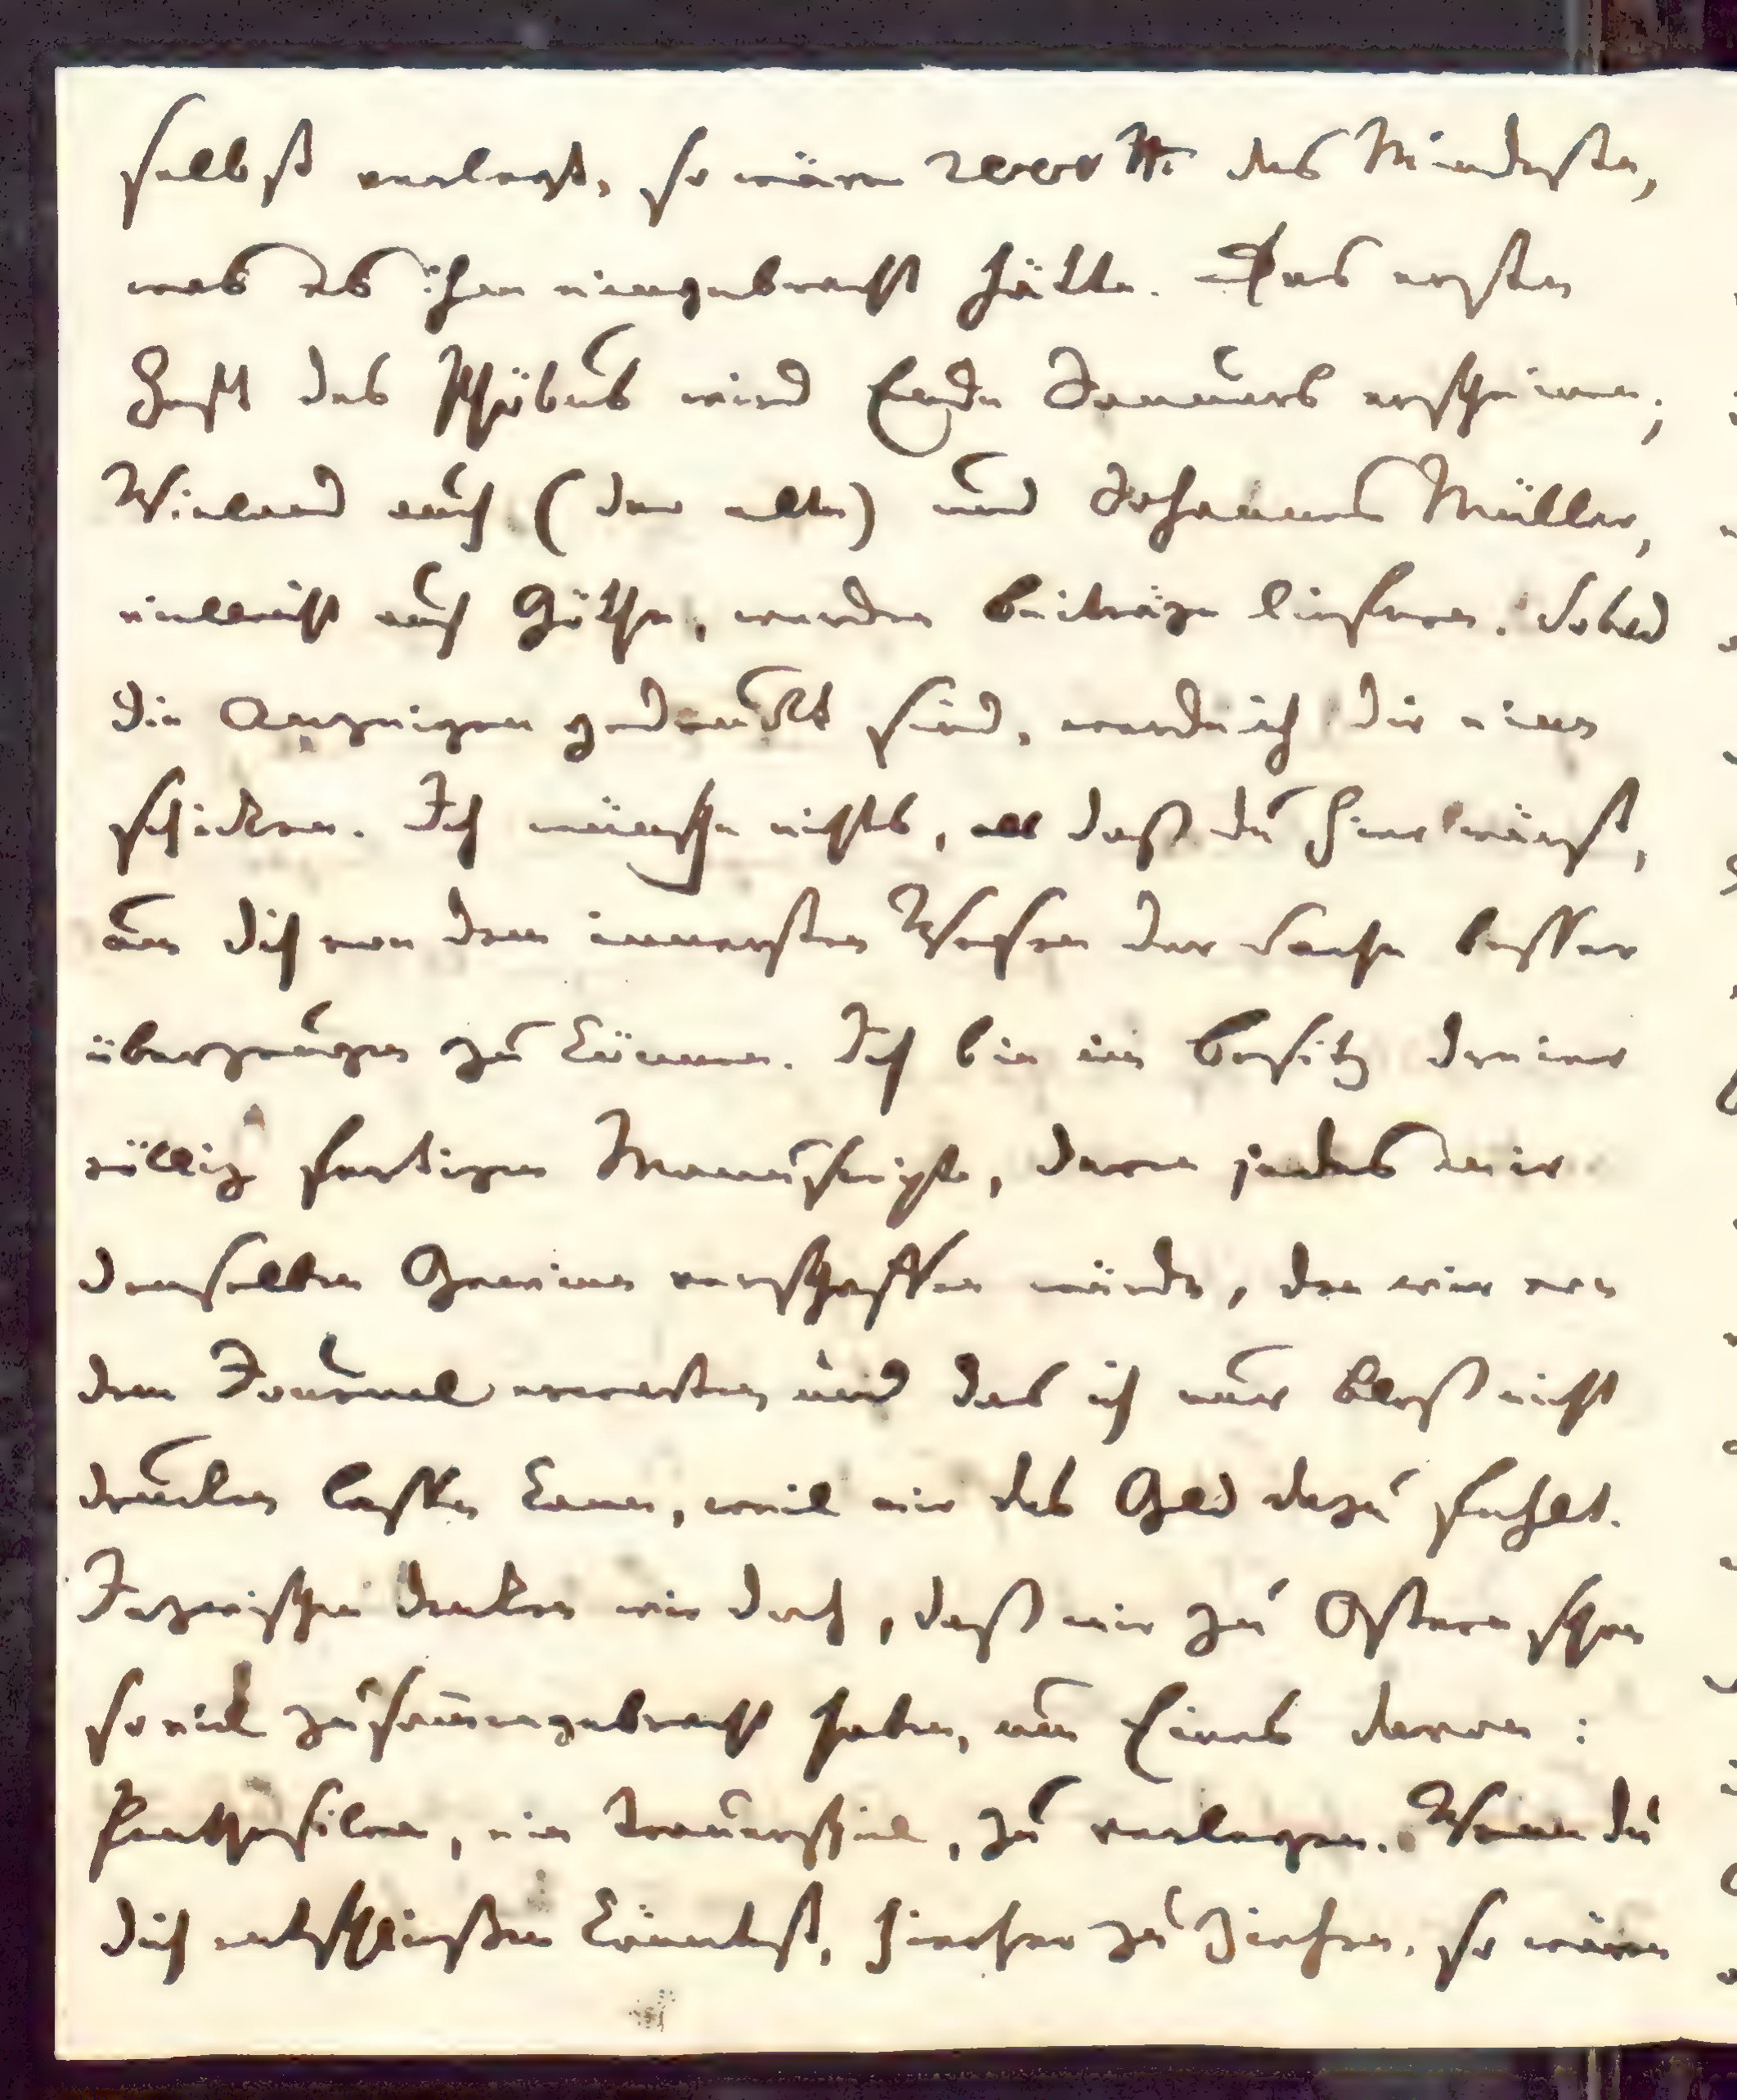 selbst verlegt, so wären 2000 Rth. das Mindeste,
was es ihm eingebracht hätte. Das erste
Heft des Phöbus wird Ende Januars erscheinen;
Wieland auch (der alte) und Johannes Müller,
vielleicht auch Göthe, werden Beiträge liefern. Sobald
die Anzeigen gedruckt sind, werde ich dir eine
schicken. Ich wünsche nichts, als daß du hier wärst,
um dich von dem innersten Wesen der Sache besser
überzeugen zu können. Ich bin im Besitz dreier
völlig fertigen Manuscripte, deren jedes mir
denselben Gewinn verschaffen würde, den wir von
dem Journal erwarten, und das ich nur bloß nicht
drucken lassen kann, weil mir das Geld dazu fehlt.
Inzwischen denken wir doch, daß wir zu Ostern schon
so viel zusam̅engebracht haben, um Eines davon:
Penthesilea, ein Trauerspiel, zu verlegen. Wenn du
dich entschließen könntest, hierher zu ziehen, so wären